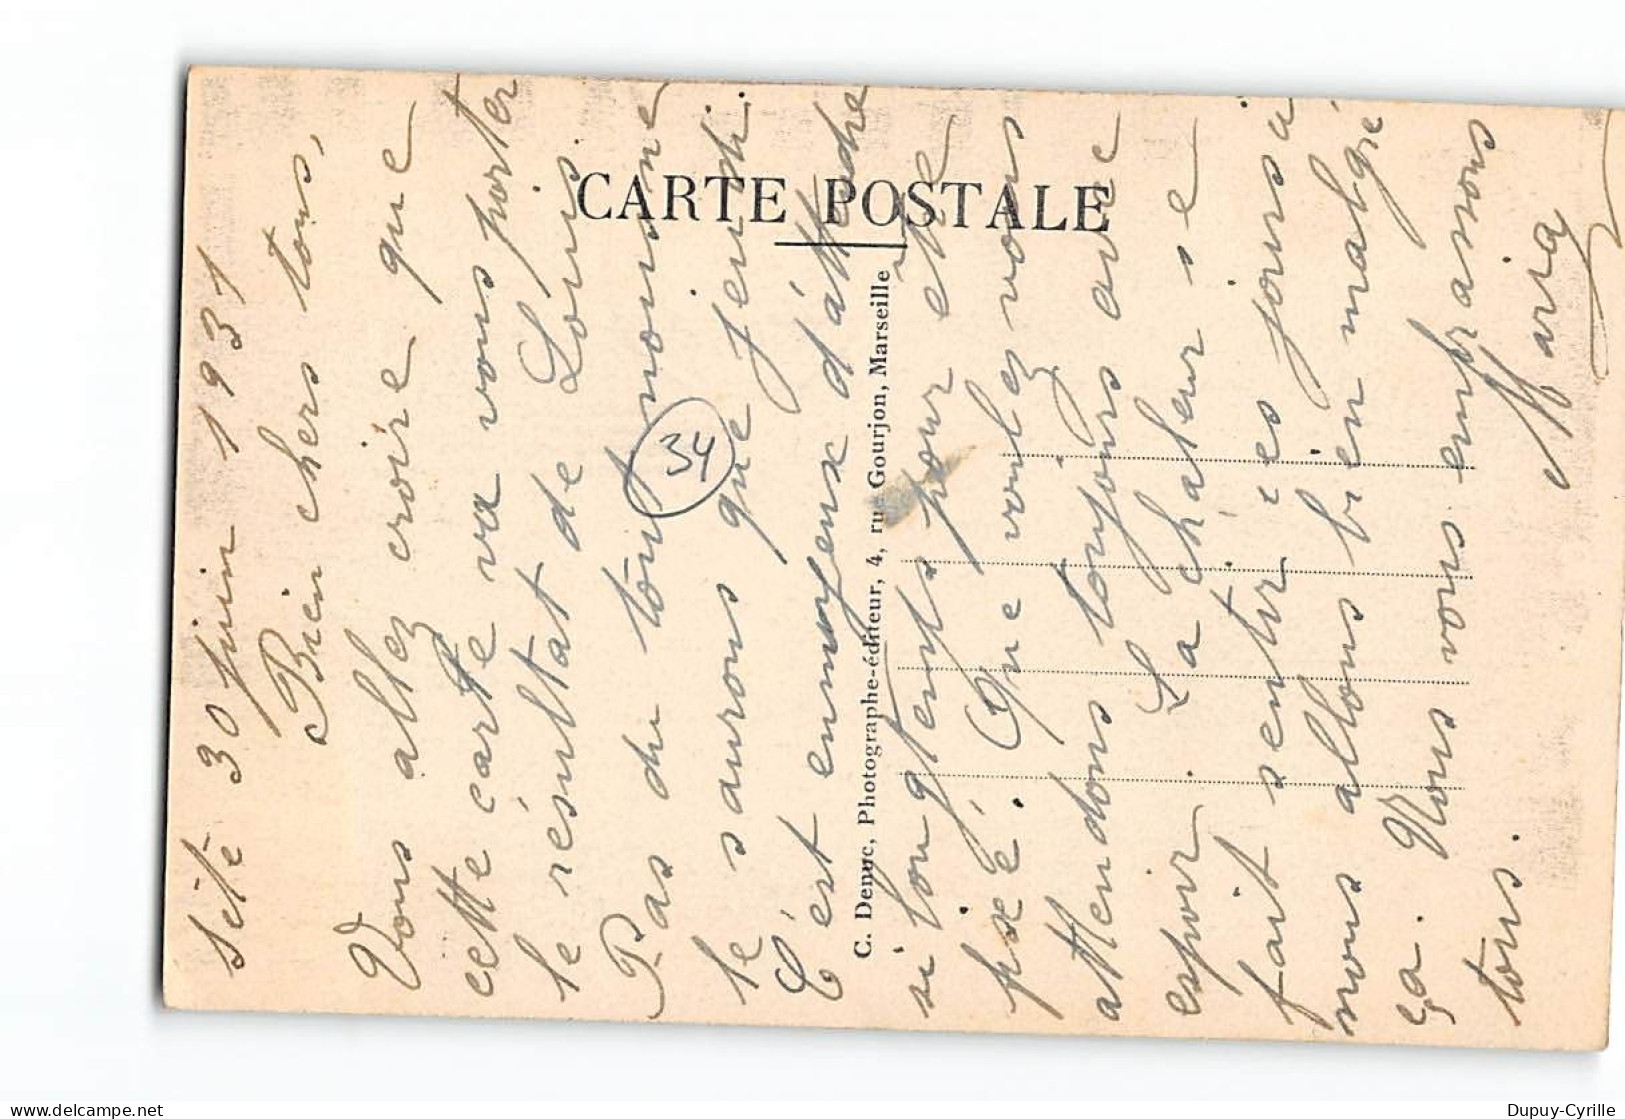 CARTE POSTALE
C. Denuc, Photographe-éditeur, 4, rue Gourjon, Marseille
34
Sète 30 juin 1931
Bien chers tous,
Vous allez croire que
cette carte va vous porter
le résultat de Louis.
Pas du tout nous ne
le saurons que jeudi.
C'est ennuyeux d'attendre
si longtemps pour être
fixé. Que voulez vous
attendons toujours avec
espoir La chaleur se
fait sentir ces jours ci
nous allons bien malgré
ça. Nous vous embrassons
tous. Maria
Dupuy-Cyrille